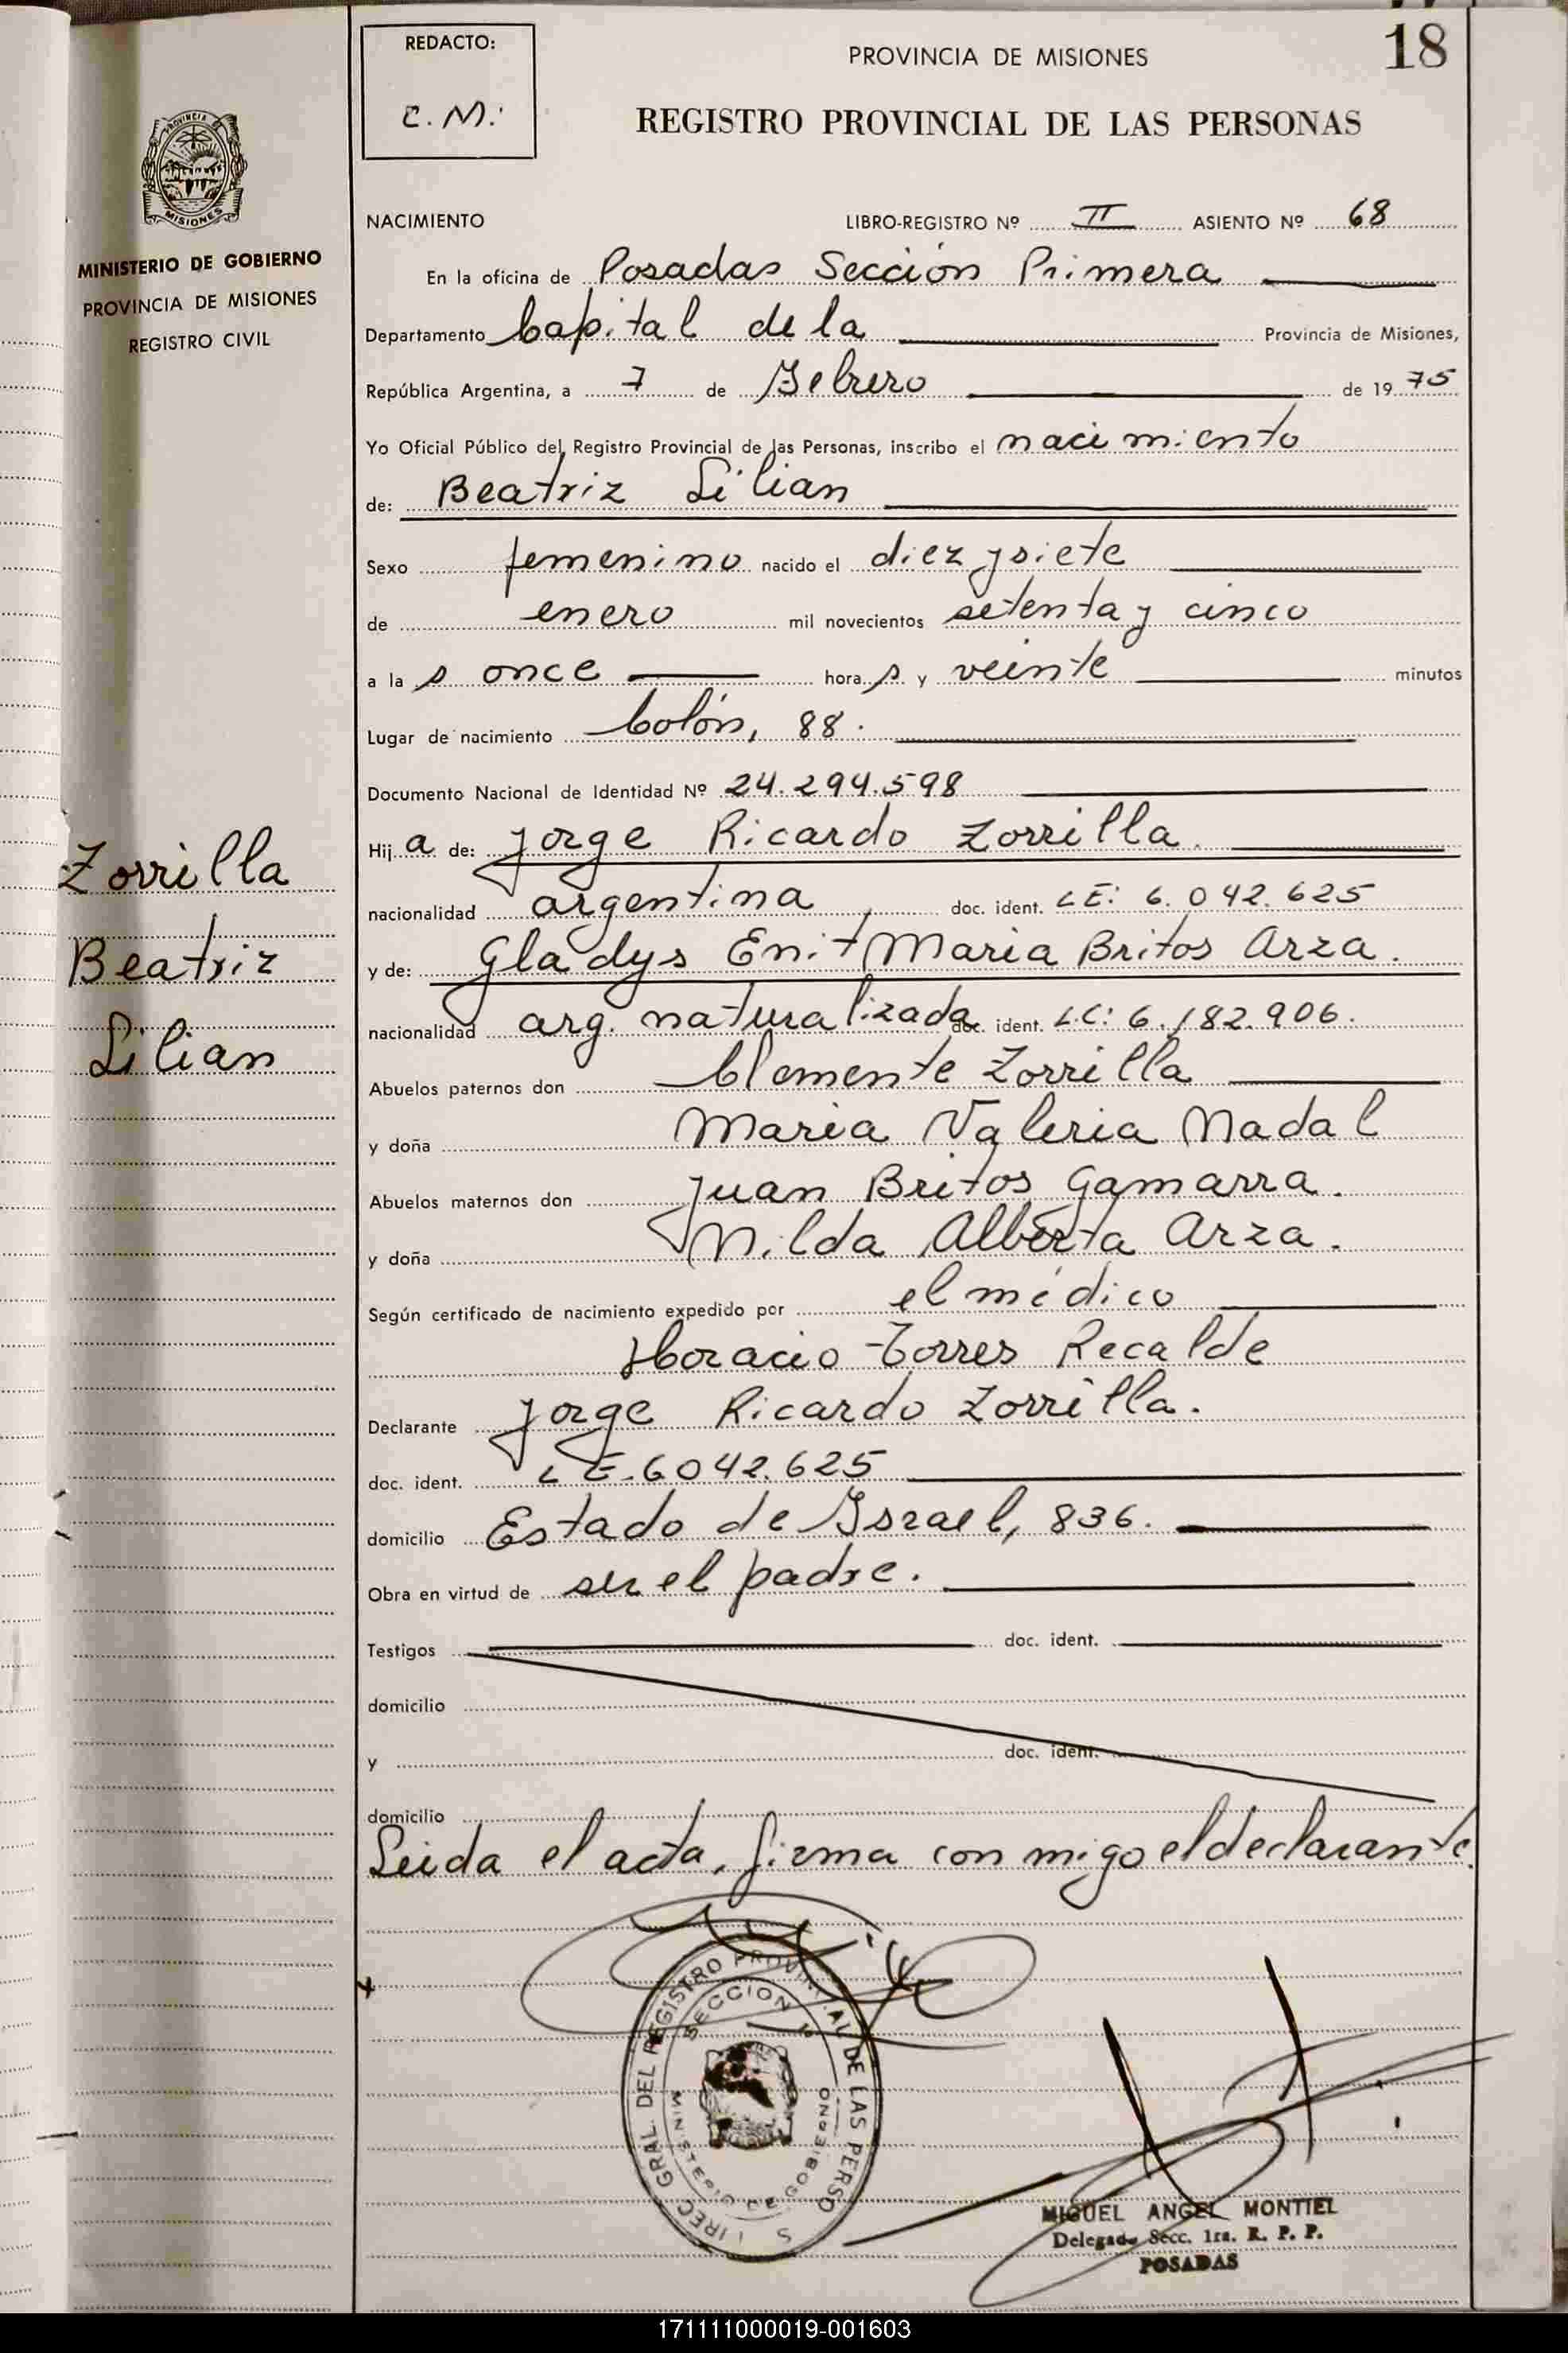 18
REDACTO:
C. M.
PROVINCIA DE MISIONES
REGISTRO PROVINCIAL DE LAS PERSONAS
PROVINCIA
MISIONES
MINISTERIO DE GOBIERNO
PROVINCIA DE MISIONES
REGISTRO CIVIL
NACIMIENTO LIBRO-REGISTRO Nº II ASIENTO Nº 68
En la oficina de Posadas Sección Primera
Departamento Capital de la Provincia de Misiones,
República Argentina, a 7 de Febrero de 1975
Yo Oficial Público del Registro Provincial de las Personas, inscribo el nacimiento
de: Beatriz Lilian
Sexo femenino nacido el diez y siete
de enero mil novecientos setenta y cinco
a la s once hora s y veinte minutos
Lugar de nacimiento Colón, 88.
Documento Nacional de Identidad Nº 24.294.598
Hij a de: Jorge Ricardo Zorrilla.
nacionalidad argentina doc. ident. LE: 6.042.625
y de: Gladys Enit Maria Britos Arza.
nacionalidad arg. naturalizada doc. ident. L.C: 6.182.906.
Abuelos paternos don Clemente Zorrilla
y doña Maria Valeria Nadal
Abuelos maternos don Juan Britos Gamarra.
y doña Nilda Alberta Arza.
Según certificado de nacimiento expedido por el médico
Horacio Torres Recalde
Declarante Jorge Ricardo Zorrilla.
doc. ident. LE.6042.625
domicilio Estado de Israel, 836.
Obra en virtud de ser el padre.
Testigos doc. ident.
domicilio
y doc. ident.
domicilio
Leida el acta, firma con migo el declarante.
Zorrilla
Beatriz
Lilian
DIREC GRAL. DEL REGISTRO PROVINCIAL DE LAS PERSO S
SECCION 1ª
MINISTERIO DE GOBIERNO
MIGUEL ANGEL MONTIEL
Delegado Secc. 1ra. R. P. P.
POSADAS
171111000019-001603